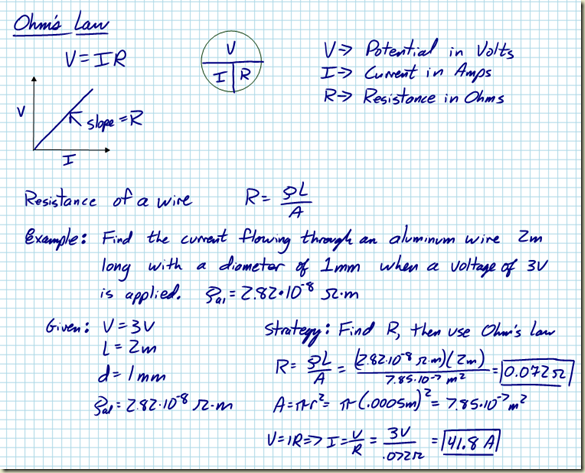 Ohm's Law
V = IR
V
I R
V => Potential in Volts
I => Current in Amps
R => Resistance in Ohms
V
slope = R
I
Resistance of a wire R = ρL/A
Example: Find the current flowing through an aluminum wire 2m
long with a diameter of 1mm when a voltage of 3V
is applied. ρal = 2.82•10⁻⁸ Ω·m
Given: V = 3V
L = 2m
d = 1mm
ρal = 2.82·10⁻⁸ Ω·m
Strategy: Find R, then use Ohm's Law
R = ρL/A = (2.82·10⁻⁸ Ω·m)(2m)/7.85·10⁻⁷ m² = 0.072Ω
A = πr² = π(.0005m)² = 7.85·10⁻⁷ m²
V = IR => I = V/R = 3V/.072Ω = 41.8 A